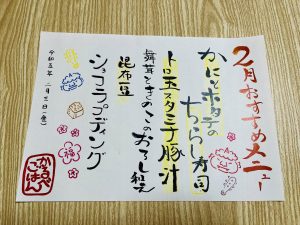 2月おすすめメニュー
かにとホタテの
ちらし寿司
トロ玉スタミナ豚汁
舞茸ときのこのおろし和え
昆布豆
ショコラプディング
令和五年 二月三日(金)
福
ごはん